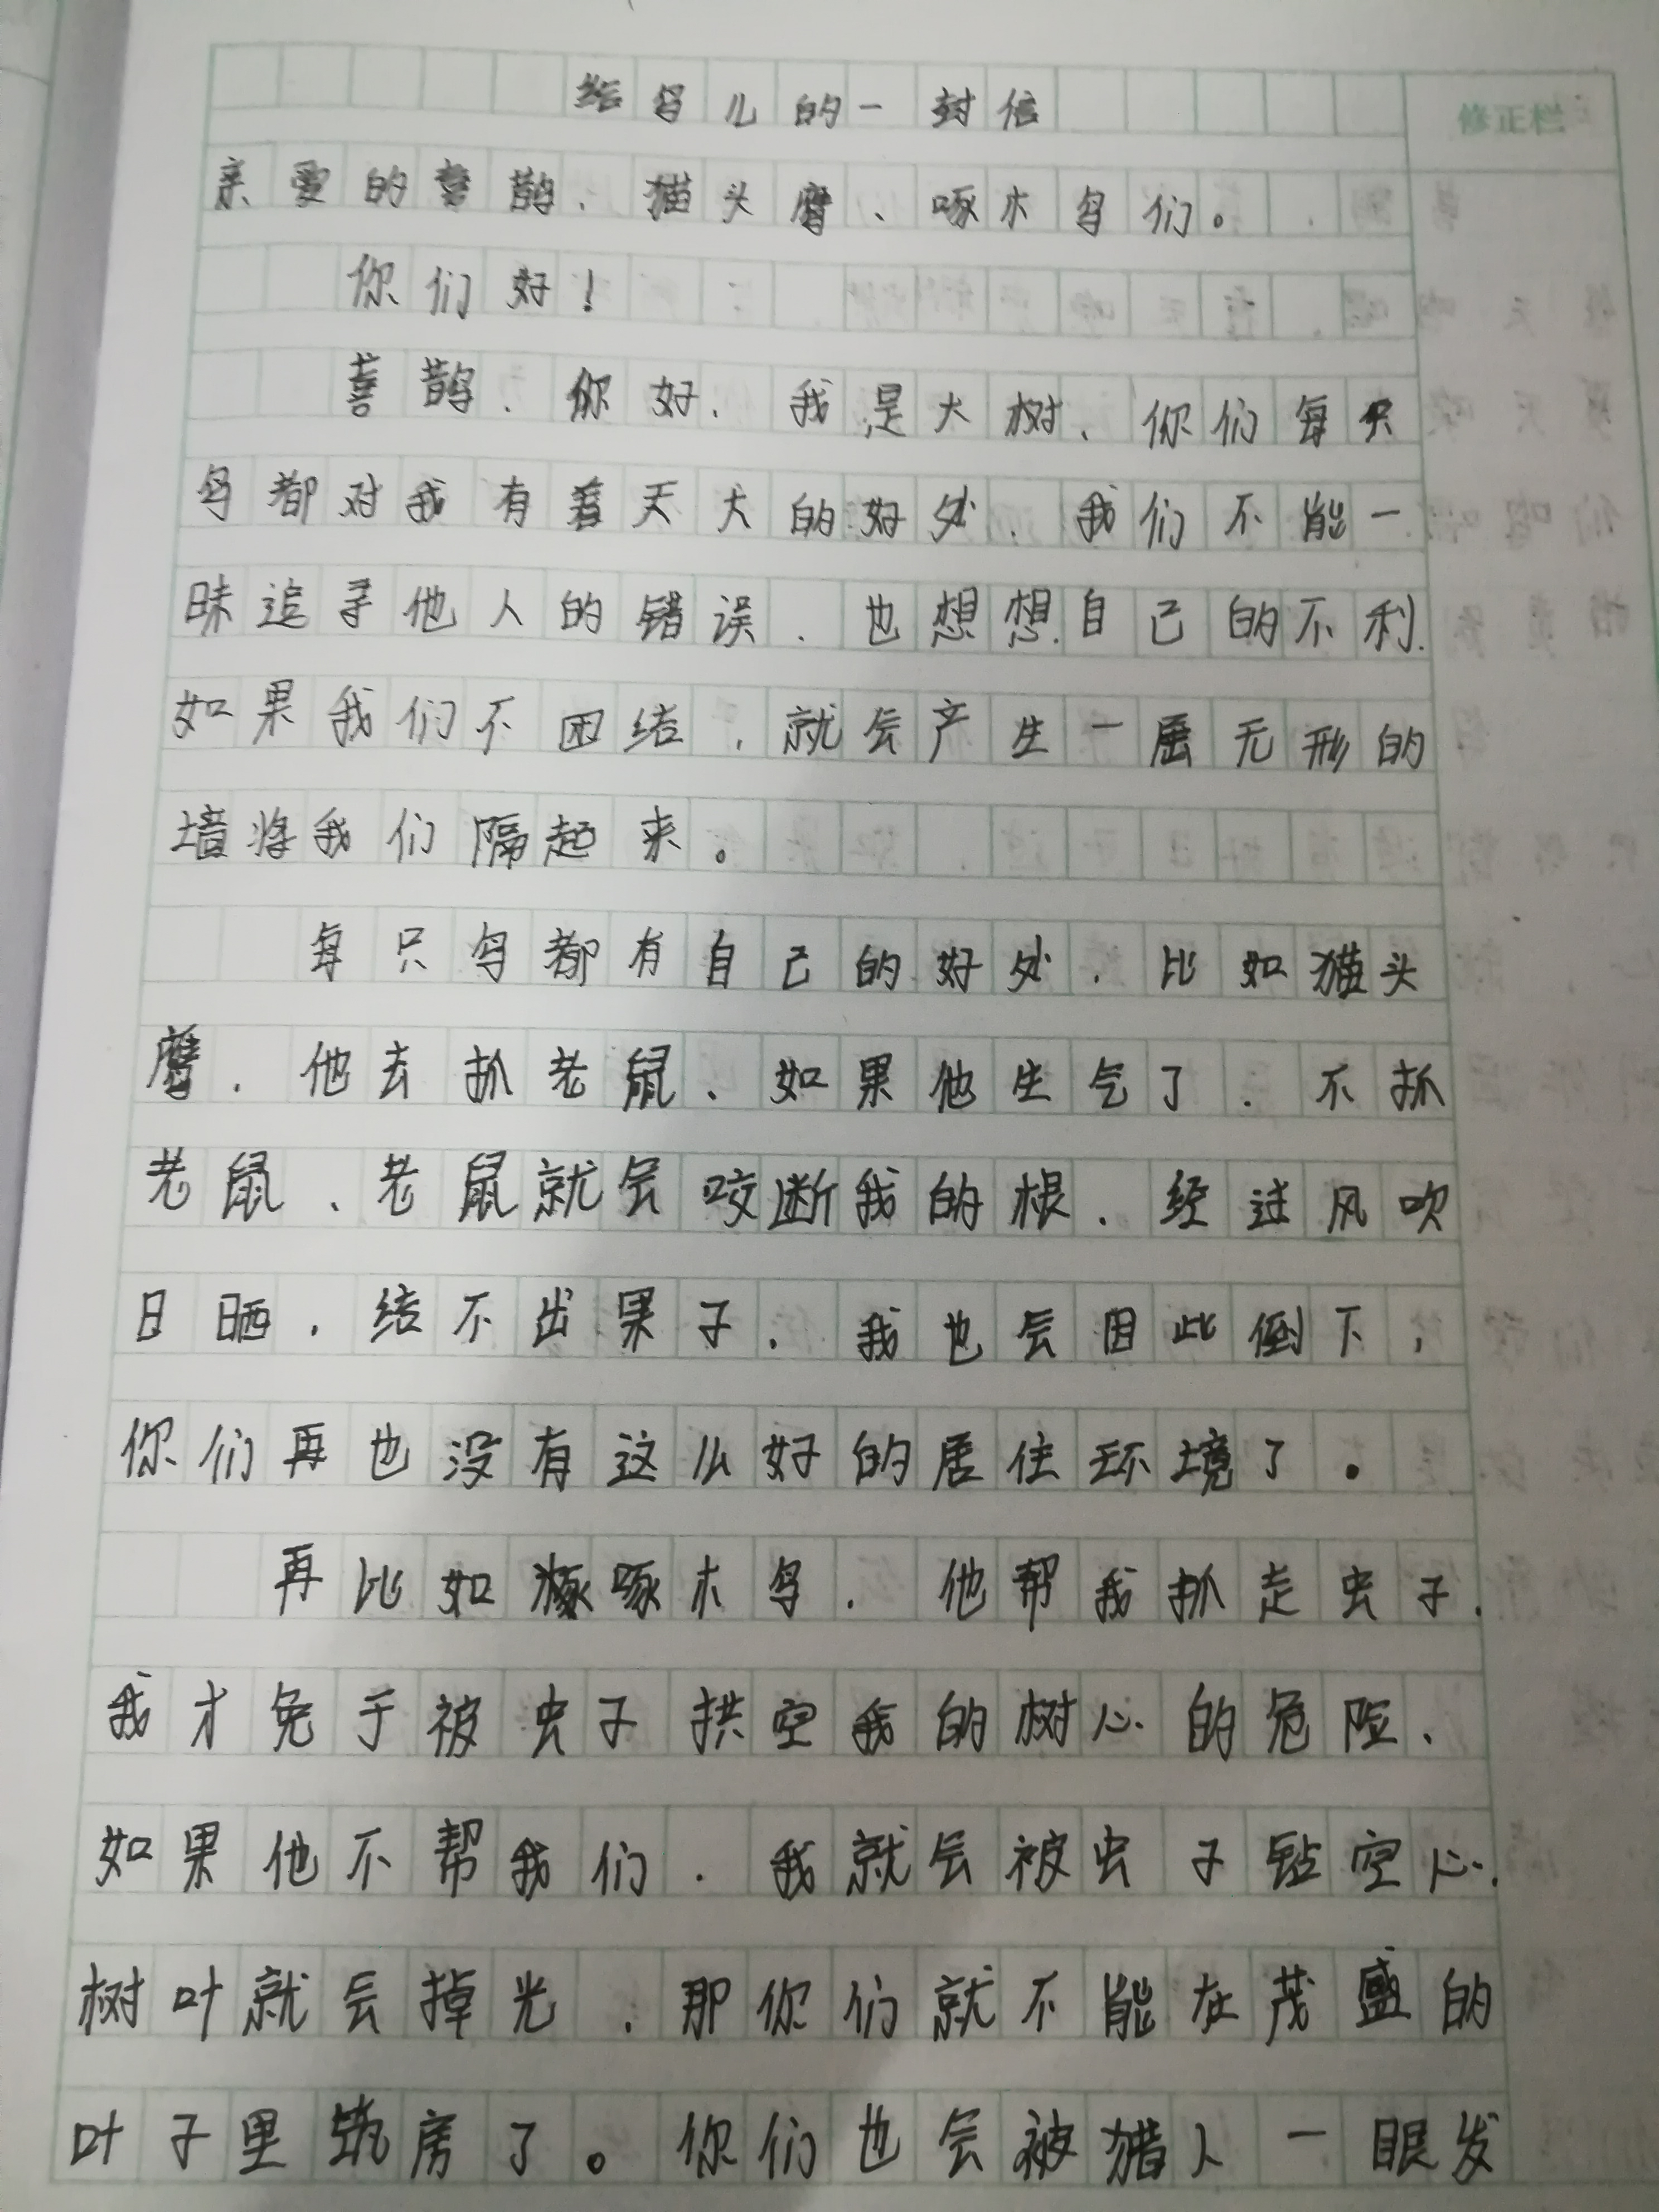 给鸟儿的一封信
修正栏
亲爱的喜鹊、猫头鹰、啄木鸟们。
你们好！
喜鹊、你好、我是大树、你们每只
鸟都对我有着天大的好处、我们不能一
昧追寻他人的错误、也想想自己的不利、
如果我们不团结，就会产生一层无形的
墙将我们隔起来。
每只鸟都有自己的好处、比如猫头
鹰、他去抓老鼠、如果他生气了、不抓
老鼠、老鼠就会咬断我的根、经过风吹
日晒，结不出果子、我也会因此倒下，
你们再也没有这么好的居住环境了。
再比如啄木鸟、他帮我抓走虫子、
我才免于被虫子拱空我的树心的危险、
如果他不帮我们、我就会被虫子钻空心、
树叶就会掉光、那你们就不能在茂盛的
叶子里筑房了。你们也会被猎人一眼发